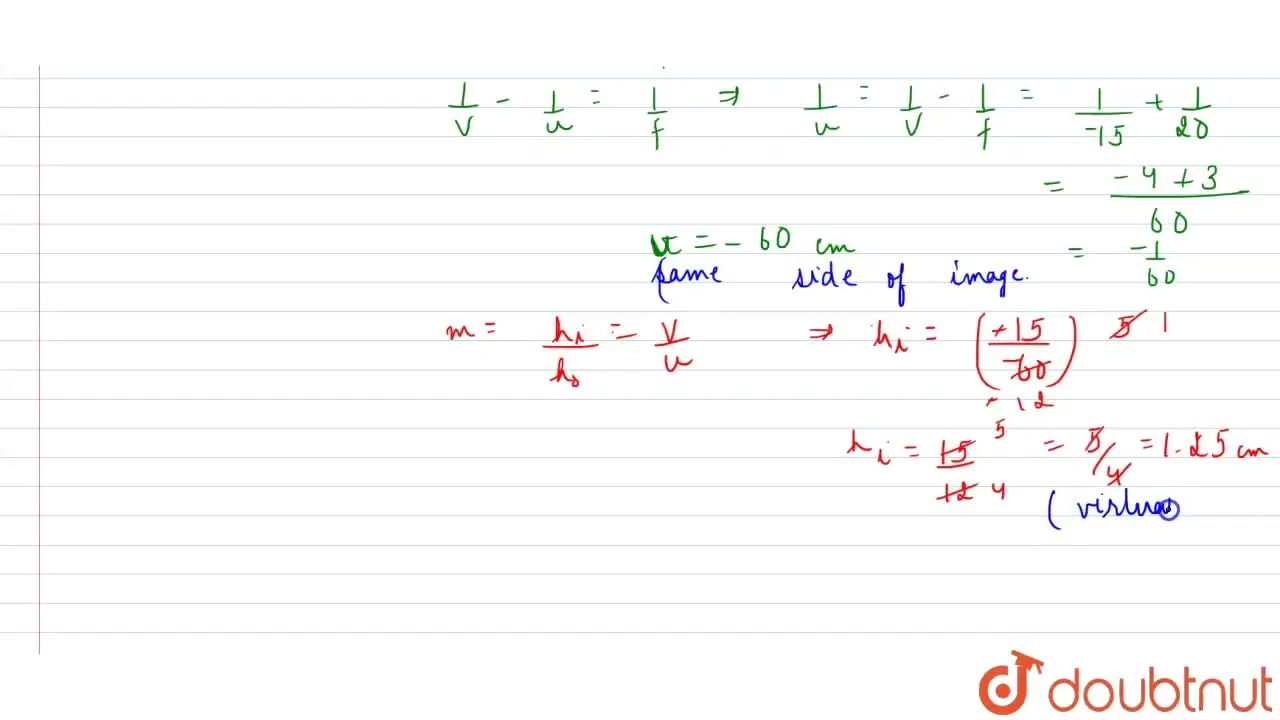 1/v - 1/u = 1/f ⇒ 1/u = 1/v - 1/f = 1/-15 + 1/20
= -4+3/60
u = - 60 cm = -1/60
(same side of image.
m = hi/ho = v/u ⇒ hi = (-15/-60) 5 1
-12
hi = 15/12 5 4 = 5/4 = 1.25 cm
( virtua
doubtnut